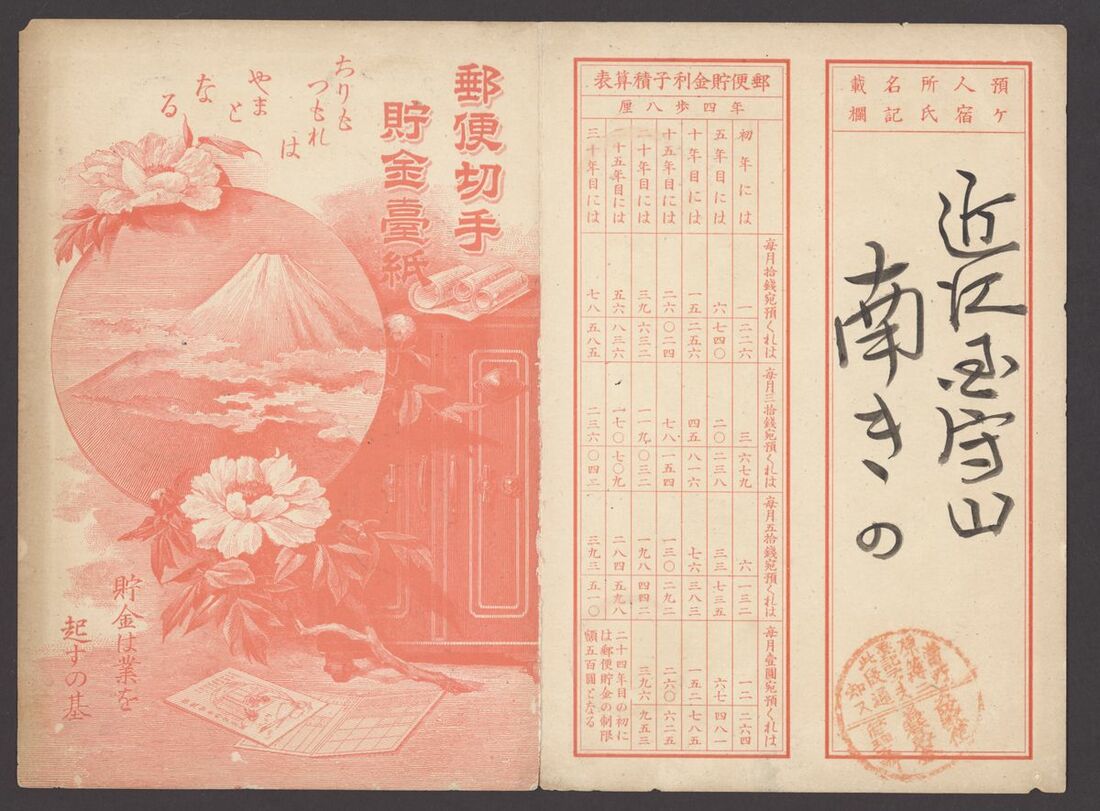 預ケ人宿所氏名記載欄
近江国守山
南きの
郵便貯金利子積算表
年四歩八厘
毎月拾錢宛預くれは 毎月三拾錢宛預くれは 毎月五拾錢宛預くれは 毎月壹圓宛預くれは
初年には 一二二六 三六七九 六一三二 一二二六四
五年目には 六七四〇 二〇二三八 三三七三五 六七四八一
十年目には 一五二五六 四五八一六 七六三八三 一五二七八五
十五年目には 二六〇二四 七八一五四 一三〇二九二 二六〇六二五
二十年目には 三九六三二 一一九〇三二 一九八四四二 三九六九五三
二十五年目には 五六八三六 一七〇七〇九 二八四五九八
三十年目には 七八五八五 二三六〇四三 三九三五一〇
二十四年目の初に
は郵便貯金の制限
額五百圓となる
郵便切手
貯金臺紙
ちりも
つもれ
は
やま
と
な
る
貯金は業を
起すの基